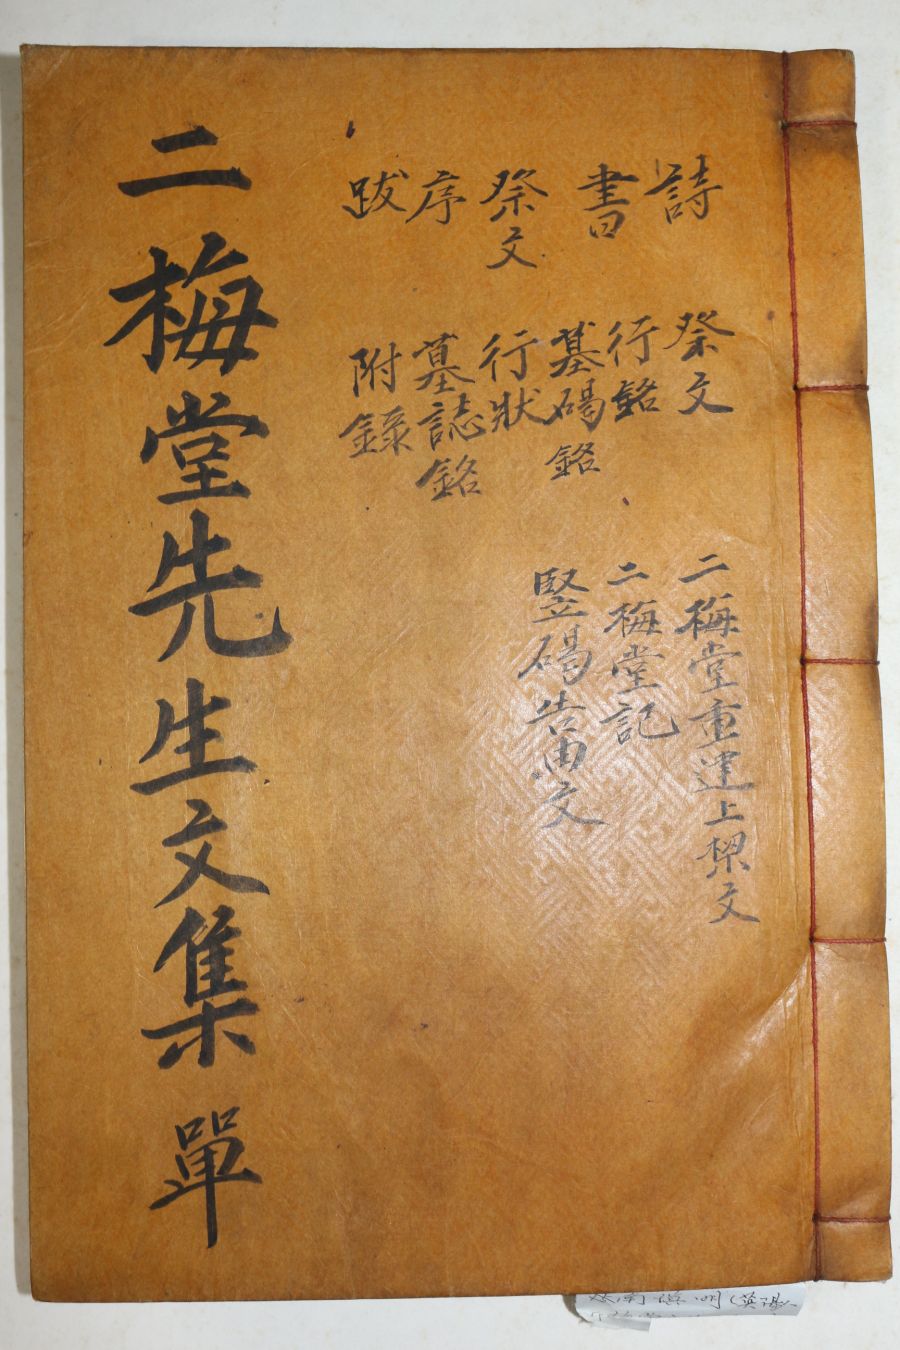 詩
書
祭文
序
跋
祭文
行銘
墓碣銘
行狀
墓誌銘
附錄
二梅堂重建上樑文
二梅堂記
竪碣告由文
二梅堂先生文集 單